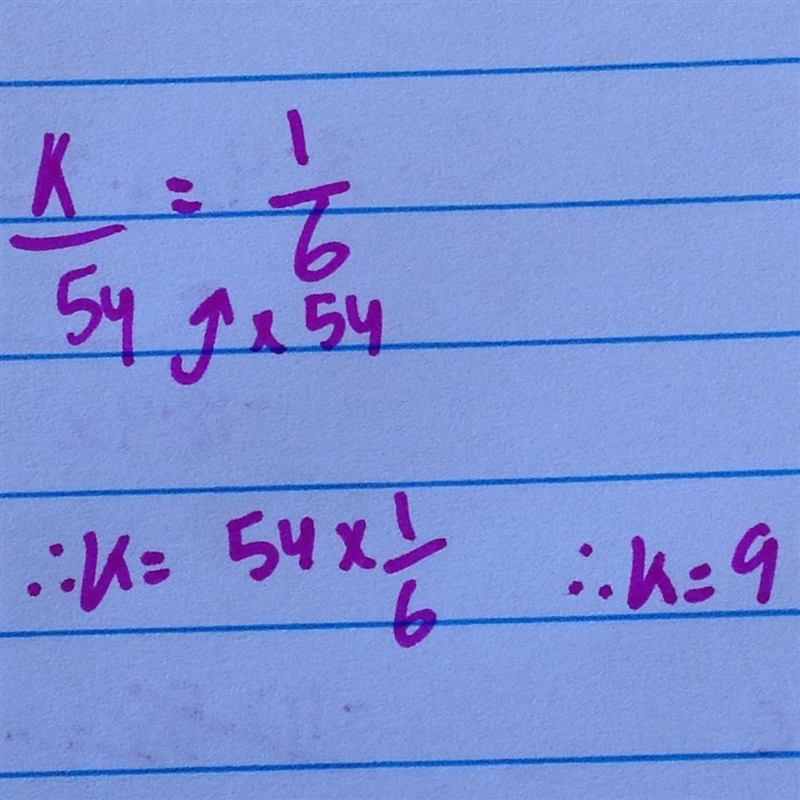 K/54 = 1/6
⤴ × 54
∴ K = 54 × 1/6 ∴ K = 9